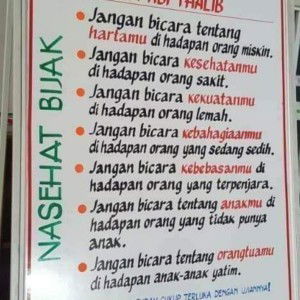 THALIB
NASEHAT BIJAK
Jangan bicara tentang
hartamu di hadapan orang miskin.
Jangan bicara kesehatanmu
di hadapan orang sakit.
Jangan bicara kekuatanmu
di hadapan orang lemah.
Jangan bicara kebahagiaanmu
di hadapan orang yang sedang sedih.
Jangan bicara kebebasanmu di
hadapan orang yang terpenjara.
Jangan bicara tentang anakmu di
hadapan orang yang tidak punya
anak.
Jangan bicara tentang orangtuamu
di hadapan anak-anak yatim.
CUKUP TERLUKA DENGAN UJIANNYA!